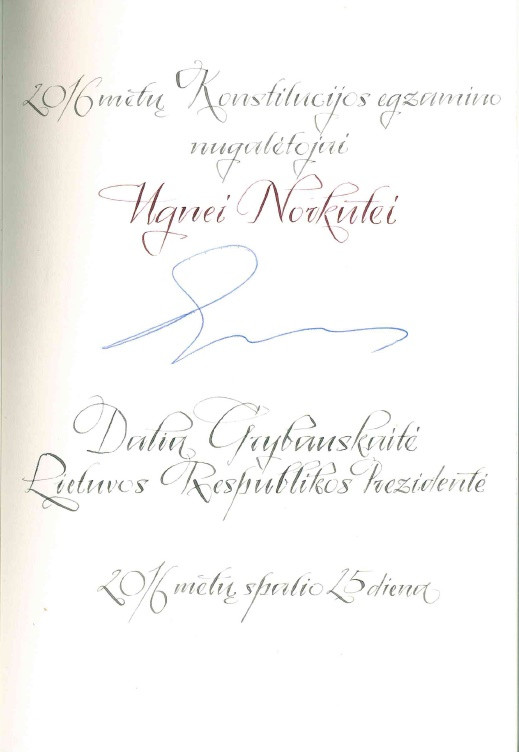 2016 metų Konstitucijos egzamino
nugalėtojai
Ugnei Norkutei
Dalia Grybauskaitė
Lietuvos Respublikos Prezidentė
2016 metų spalio 25 diena